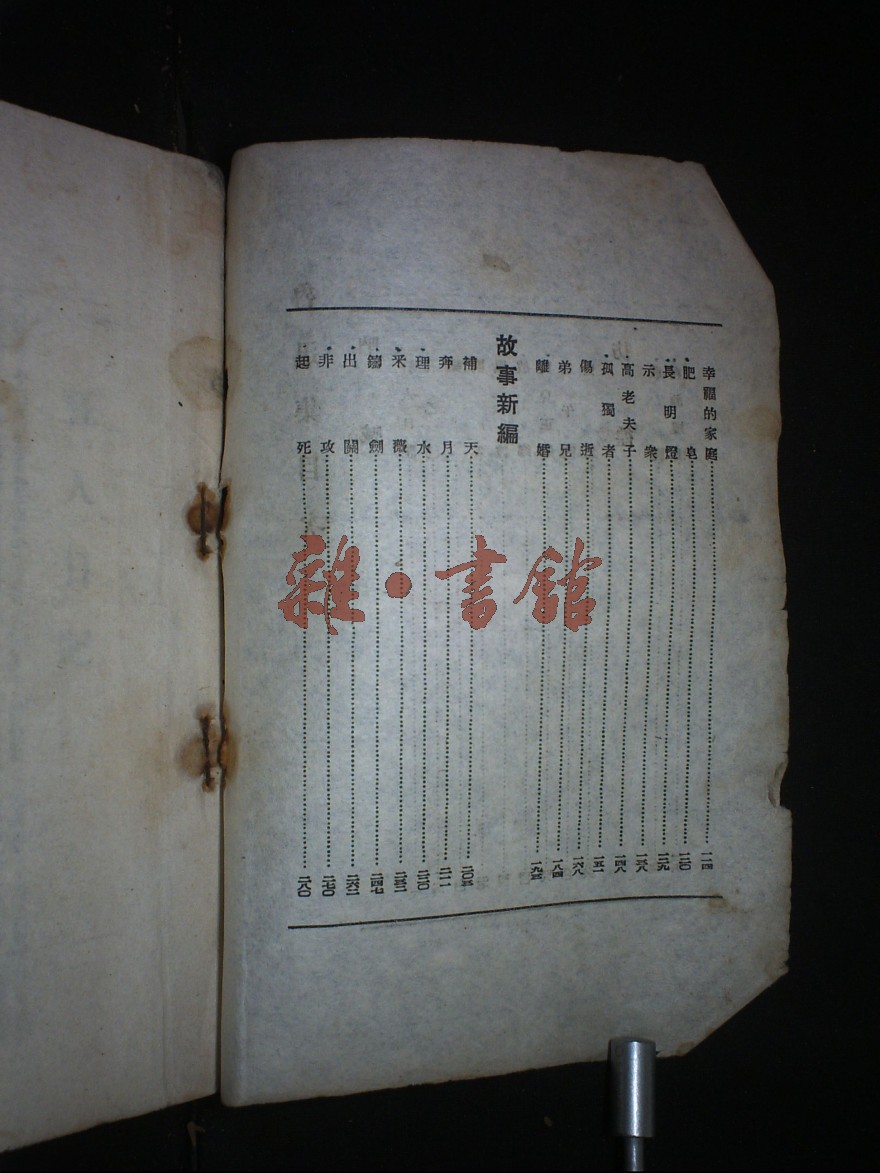 幸福的家庭 一一四
肥皂 一二〇
長明燈 一二九
示衆 一三八
高老夫子 一四八
孤獨者 一五一
傷逝 一六八
弟兄 一八四
離婚 一九五
故事新編
補天 二〇五
奔月 二一一
理水 二二〇
采薇 二三二
鑄劍 二四七
出關 二六二
非攻 二七〇
起死 二八〇
雜·書館